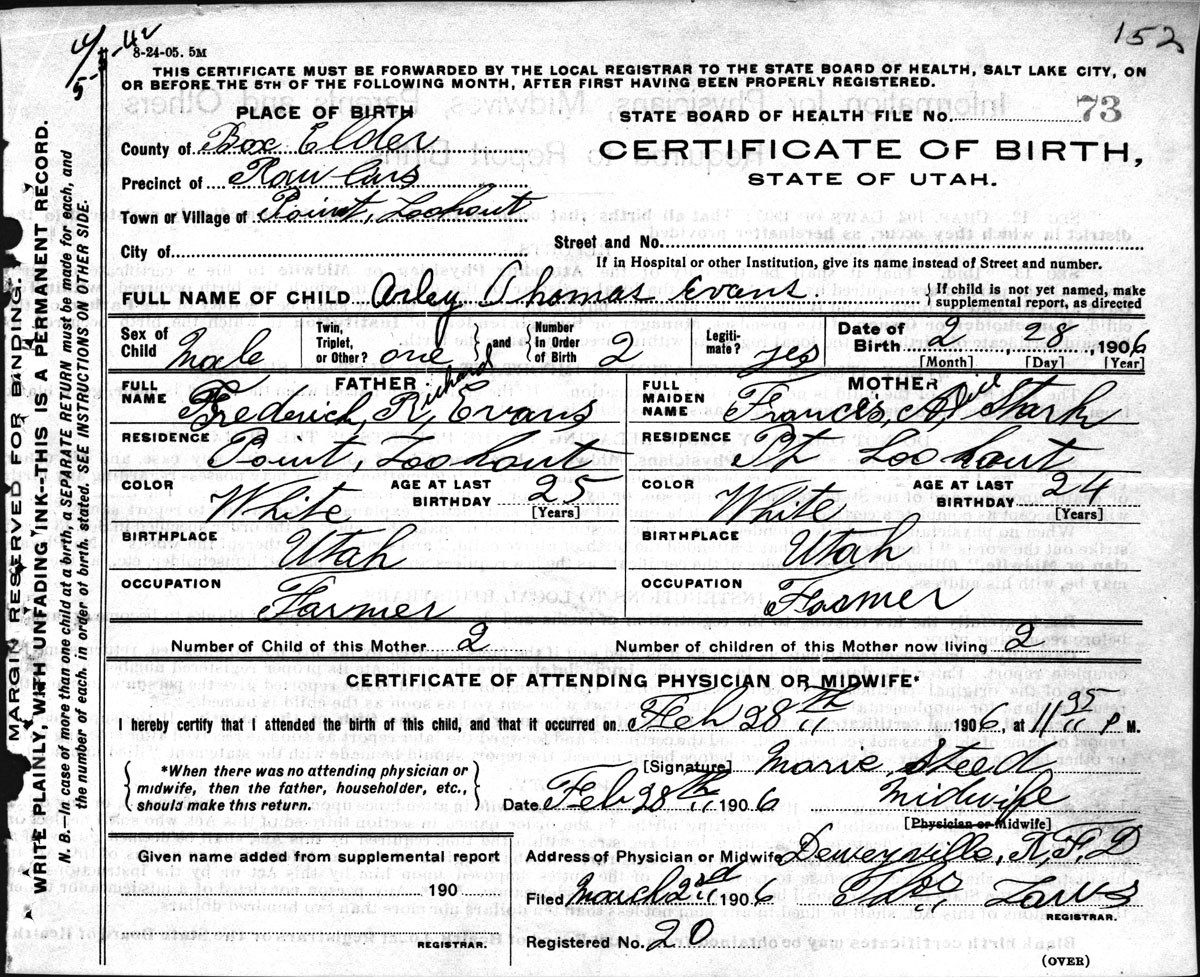 152
8-24-05. 5M
THIS CERTIFICATE MUST BE FORWARDED BY THE LOCAL REGISTRAR TO THE STATE BOARD OF HEALTH, SALT LAKE CITY, ON
OR BEFORE THE 5TH OF THE FOLLOWING MONTH, AFTER FIRST HAVING BEEN PROPERLY REGISTERED.
PLACE OF BIRTH
STATE BOARD OF HEALTH FILE No. 73
County of Box Elder
CERTIFICATE OF BIRTH,
STATE OF UTAH.
Precinct of
Town or Village of Point, Lookout
City of
Street and No.
If in Hospital or other Institution, give its name instead of Street and number.
FULL NAME OF CHILD Arley Thomas Evans
If child is not yet named, make
supplemental report, as directed
Sex of Child Male
Twin, Triplet, or Other? one and Number In Order of Birth 2
Legitimate? yes
Date of Birth 2, 28, 1906
[Month] [Day] [Year]
FATHER
FULL NAME Frederick, R, Evans
Richard
RESIDENCE Point, Lookout
COLOR White AGE AT LAST BIRTHDAY 25
[Years]
BIRTHPLACE Utah
OCCUPATION Farmer
MOTHER
FULL MAIDEN NAME Francis, A, Stark
RESIDENCE Pt Lookout
COLOR White AGE AT LAST BIRTHDAY 24
[Years]
BIRTHPLACE Utah
OCCUPATION Farmer
Number of Child of this Mother 2 Number of children of this Mother now living 2
CERTIFICATE OF ATTENDING PHYSICIAN OR MIDWIFE*
I hereby certify that I attended the birth of this child, and that it occurred on Feb 28th 1906, at 11 35 P M.
*When there was no attending physician or
midwife, then the father, householder, etc.,
should make this return.
[Signature] Marie, Steed
Date Feb 28th 1906 Midwife
[Physician or Midwife]
Given name added from supplemental report
190
REGISTRAR.
Address of Physician or Midwife Deweyville, R.F.D
Filed March 2nd 1906 Thos
REGISTRAR.
Registered No. 20
(OVER)
MARGIN RESERVED FOR BINDING.
WRITE PLAINLY, WITH UNFADING INK—THIS IS A PERMANENT RECORD.
N. B.—In case of more than one child at a birth, a SEPARATE RETURN must be made for each, and
the number of each, in order of birth, stated. SEE INSTRUCTIONS ON OTHER SIDE.